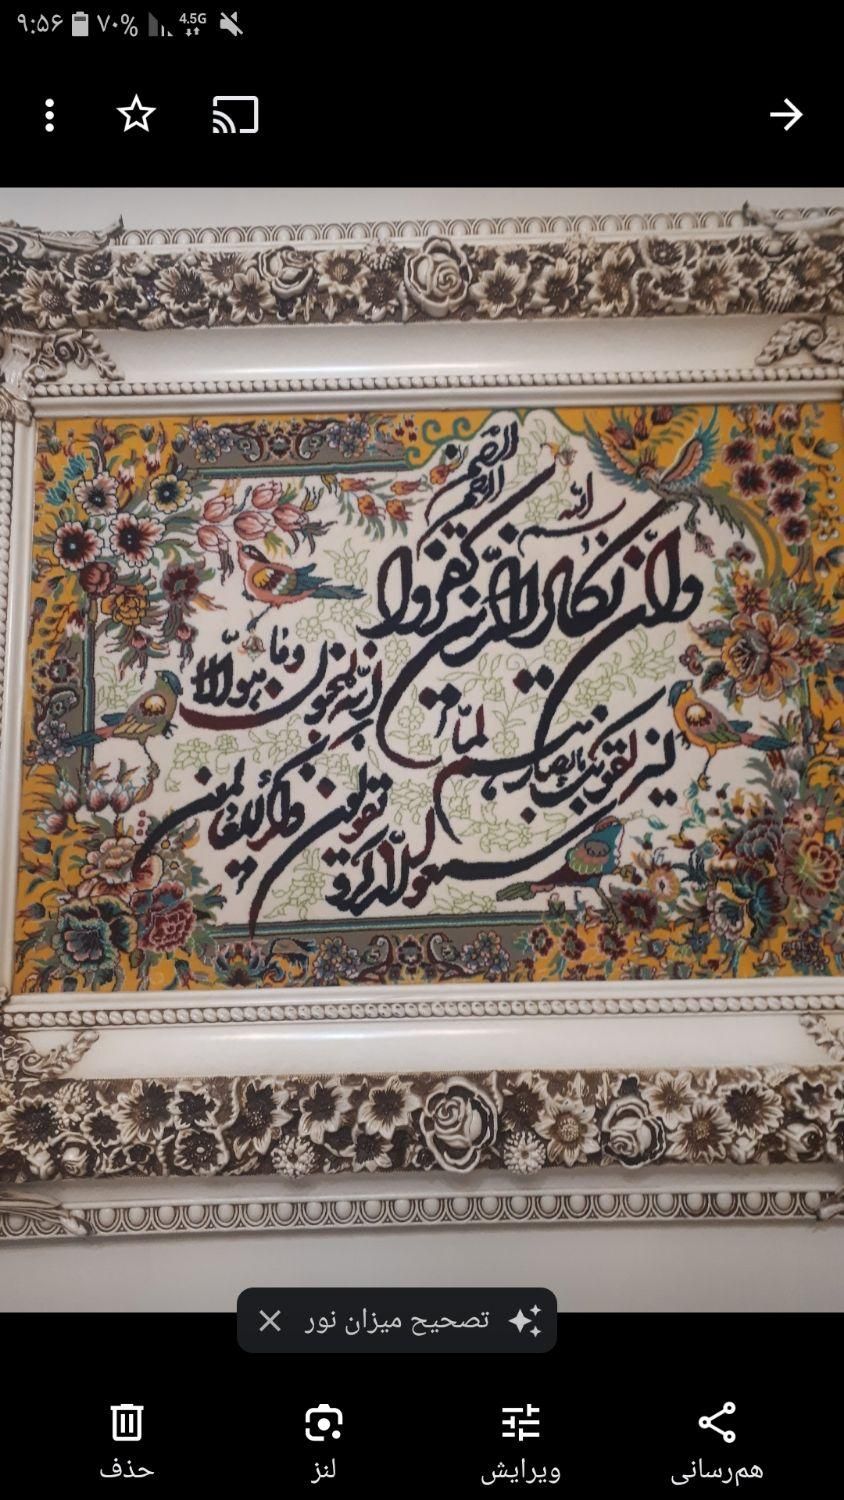 ۹:۵۶ ۷۰% 4.5G
بسم الله الرحمن الرحیم
وان یکاد الذین کفروا
لیزلقونک بابصارهم لما
سمعوا الذکر و یقولون
انه لمجنون وما هو الا
ذکر للعالمین
تصحیح میزان نور
هم‌رسانی
ویرایش
لنز
حذف